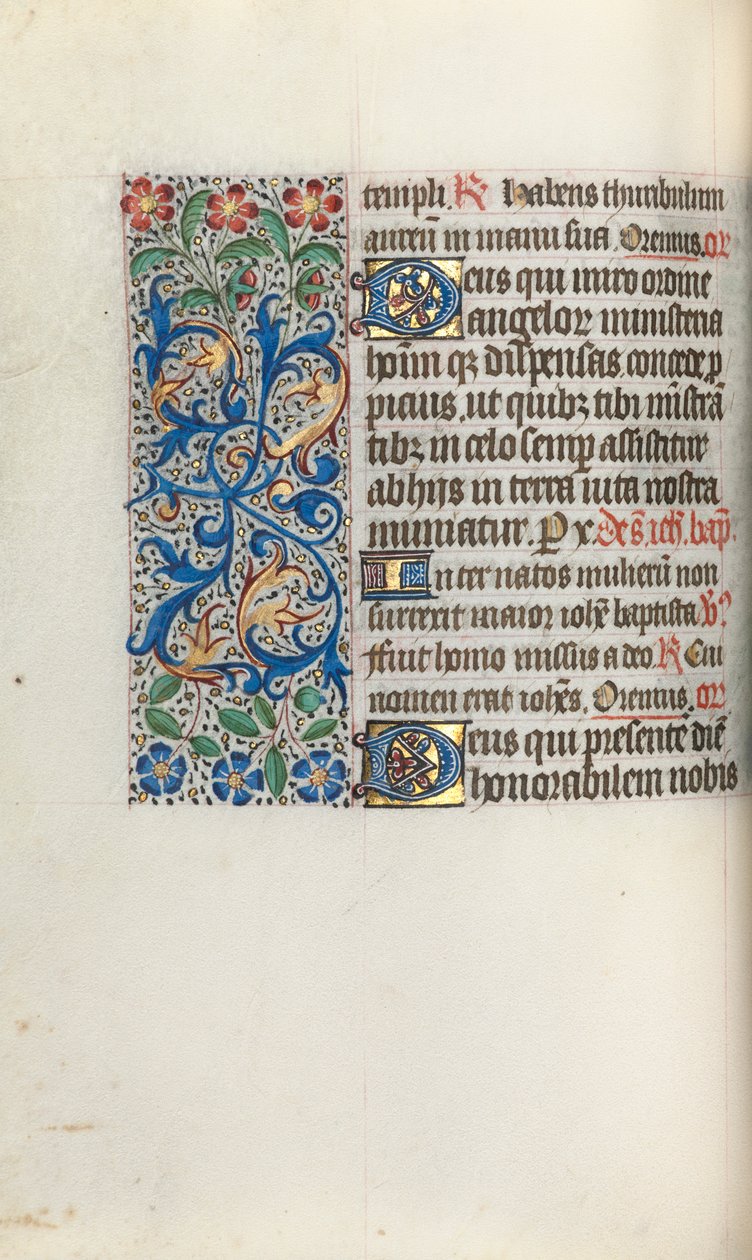 templi. R Habens thuribulum
aureū in manu sua. Oremus. or̄
Deus qui miro ordine
angeloꝝ ministeria
hoīm qꝫ disp̄ensas. concede ꝓ
picius. ut quibꝫ tibi mīstrā
tibꝫ in celo semp̄ assistitur
ab hijs in terra uita nostra
muniatur. P xp̄. De s. ioh̄. bap̄.
Inter natos mulierū non
surrexit maior ioh̄e baptista ℣
ffuit homo missus a deo. R Cui
nomen erat ioh̄es. Oremus. or̄
Deus qui presentē diē
honorabilem nobis